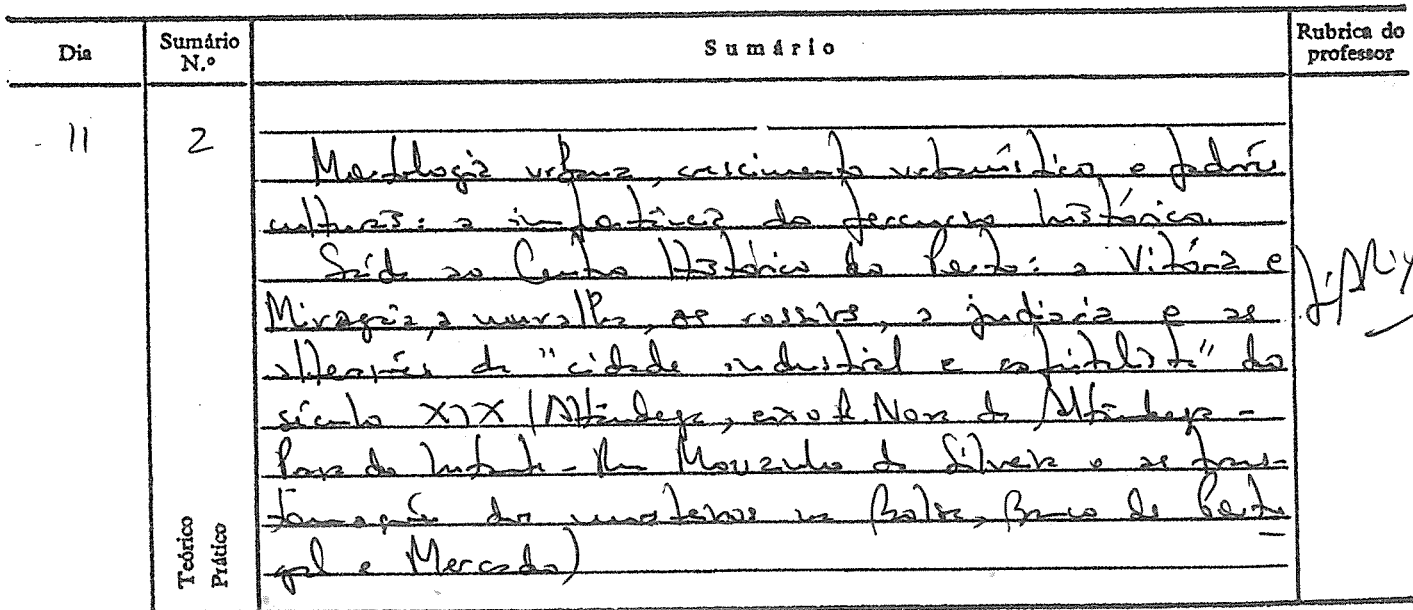 Dia
Sumário N.º
Sumário
Rubrica do professor
11
2
Morfologia urbana, crescimento urbanístico e padrões
culturais: a importância do percurso histórico.
Saída ao Centro Histórico do Porto: a Vitória e
Miragaia, a muralha, os rossios, a judiaria e as
alterações da "cidade industrial e capitalista" do
século XIX (Alfândega, eixo R. Nova da Alfândega -
Praça do Infante - Rua Mouzinho da Silveira e as trans-
formações dos mosteiros na Bolsa, Banco de Portu-
gal e Mercado)
Teórico
Prático